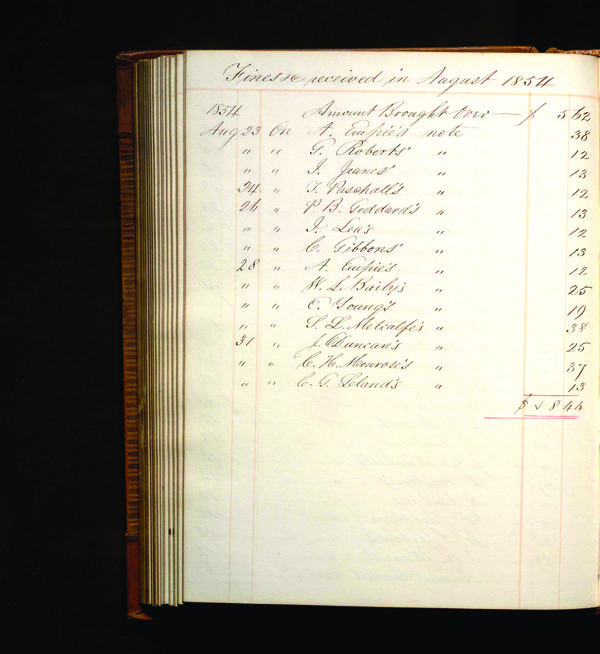 Fines &c received in August 1854
1854 Amount Brought Over — $ 5 62
Aug 23 On A. Empie's note 38
" " G. Roberts' " 12
" " I. Jeanes' " 13
24 " T. Paschall's " 12
26 " P. B. Goddard's " 13
" " I. Lea's " 12
" " C. Gibbons' " 13
28 " A. Empie's " 12
" " W. L. Baily's " 25
" " E. Young's " 19
" " S. L. Metcalfe's " 38
31 " J. Duncan's " 25
" " C. H. Monrose's " 37
" " C. G. Leland's " 13
$ √ 8 44